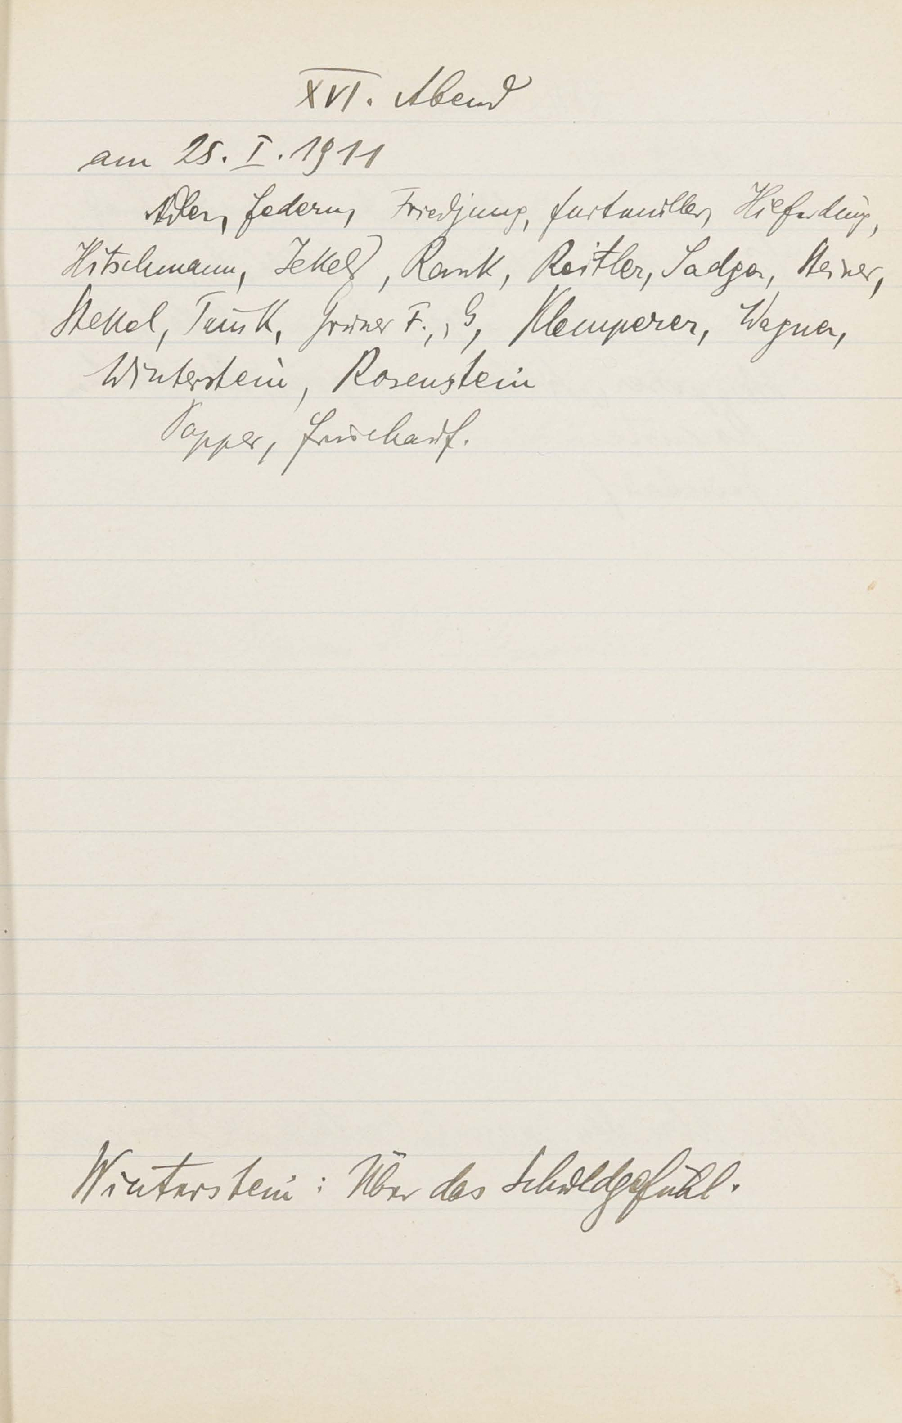 XVI. Abend
am 25. I. 1911
Adler, Federn, Friedjung, Furtmüller, Hilferding,
Hitschmann, Jekels, Rank, Reitler, Sadger, Steiner,
Stekel, Tausk, Grüner F., , G, Klemperer, Wagner,
Winterstein, Rosenstein
Popper, Frischauf.
Winterstein: Über das Schuldgefühl.